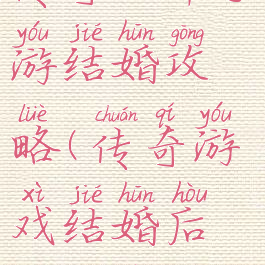 yóu jié hūn gōng
游结婚攻
lüè chuán qí yóu
略(传奇游
xì jié hūn hòu
戏结婚后